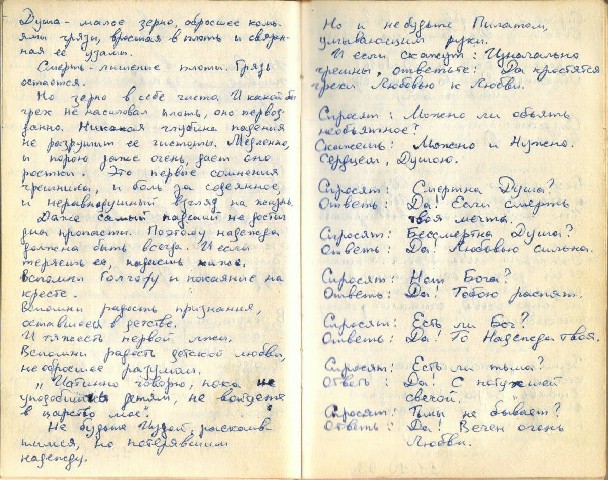 Душа - малое зерно, обросшее комь-
ями грязи, вросшая в плоть и связан-
ная её узами.
Смерть - лишение плоти. Грязь
остаётся.
Но зерно в себе чисто. И какой бы
грех не насиловал плоть, оно первоз-
данно. Никакая глубина падения
не разрушит её чистоты. Медленно,
и порою даже очень, даёт оно
ростки. Это первые сомнения
грешника, и боль за содеянное,
и неравнодушный взгляд на жизнь.
Даже самый падший не достиг
дна пропасти. Поэтому надежда
должна быть всегда. И если
теряешь её,
Вспомни Голгофу и покаяние на
кресте.
Вспомни радость признания,
оставшееся в детстве.
И тяжесть первой лжи.
Вспомни радость детской любви,
не обросшее разумом.
"Истинно говорю, пока не
уподобитесь детям, не войдёте
в царство моё".
Не будьте Иудой, раскаяв-
шимся, но потерявшим
надежду.
Но и не будьте Пилатом,
умывающим руки.
И если скажут: Изначально
грешны, ответьте: Да простятся
грехи Любовью к Любви.
Спросят: Можно ли объять
необъятное?
Скажешь: Можно и Нужно.
Сердцем, Душою.
Спросят: Смертна Душа?
Ответь: Да! Если смерть
твоя мечта.
Спросят: Бессмертна Душа?
Ответь: Да! Любовью сильна.
Спросят: Нет Бога?
Ответь: Да! Тобою распят.
Спросят: Есть ли Бог?
Ответь: Да! То Надежда твоя.
Спросят: Есть ли тьма?
Ответь: Да! С потухшей
свечой.
Спросят: Тьмы не бывает?
Ответь: Да! Вечен огонь
Любви.